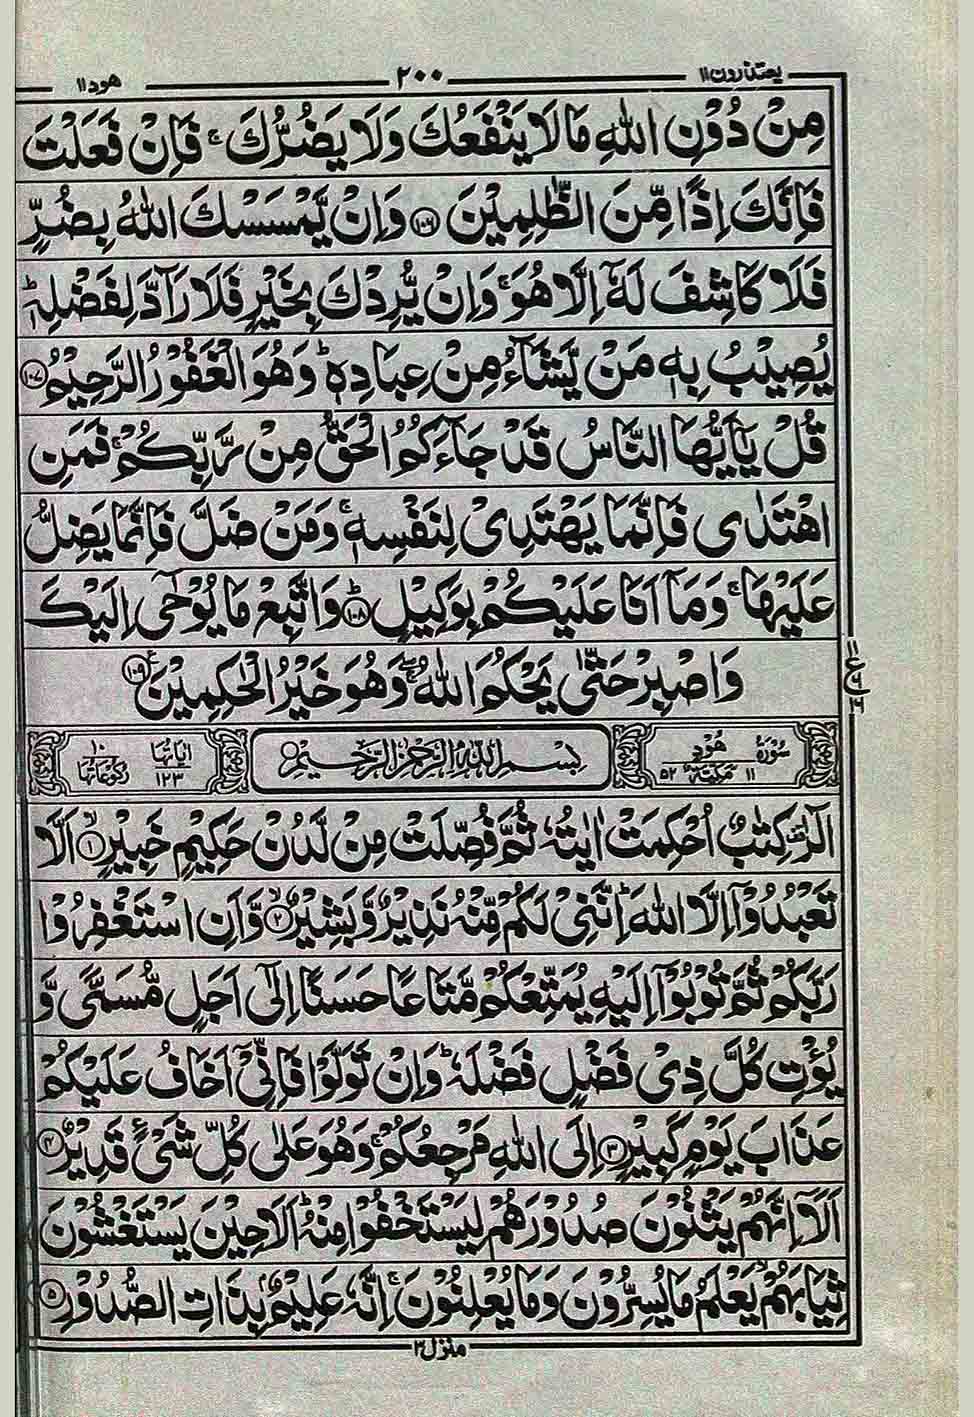 یعتذرون ۱۱ ۲۰۰ ھود ۱۱
مِنْ دُوْنِ اللّٰهِ مَا لَا يَنْفَعُكَ وَلَا يَضُرُّكَ ۚ فَاِنْ فَعَلْتَ
فَاِنَّكَ اِذًا مِّنَ الظّٰلِمِيْنَ ۝۱۰۶ وَاِنْ يَّمْسَسْكَ اللّٰهُ بِضُرٍّ
فَلَا كَاشِفَ لَهٗۤ اِلَّا هُوَ ۚ وَاِنْ يُّرِدْكَ بِخَيْرٍ فَلَا رَآدَّ لِفَضْلِهٖ ؕ
يُصِيْبُ بِهٖ مَنْ يَّشَآءُ مِنْ عِبَادِهٖ ؕ وَهُوَ الْغَفُوْرُ الرَّحِيْمُ ۝۱۰۷
قُلْ يٰۤاَيُّهَا النَّاسُ قَدْ جَآءَكُمُ الْحَقُّ مِنْ رَّبِّكُمْ ۚ فَمَنِ
اهْتَدٰى فَاِنَّمَا يَهْتَدِىْ لِنَفْسِهٖ ۚ وَمَنْ ضَلَّ فَاِنَّمَا يَضِلُّ
عَلَيْهَا ۚ وَمَاۤ اَنَا عَلَيْكُمْ بِوَكِيْلٍ ؕ۝۱۰۸ وَاتَّبِعْ مَا يُوْحٰۤى اِلَيْكَ
وَاصْبِرْ حَتّٰى يَحْكُمَ اللّٰهُ ۖۚ وَهُوَ خَيْرُ الْحٰكِمِيْنَ ۝۱۰۹
ع ۱۱ ۶ ۱۶
سُوْرَةُ هُوْدٍ ۱۱ مَكِّيَّةٌ ۵۲ بِسْمِ اللّٰهِ الرَّحْمٰنِ الرَّحِيْمِ اٰيَاتُهَا ۱۲۳ رُكُوْعَاتُهَا ۱۰
الٓرٰ ۚ كِتٰبٌ اُحْكِمَتْ اٰيٰتُهٗ ثُمَّ فُصِّلَتْ مِنْ لَّدُنْ حَكِيْمٍ خَبِيْرٍ ۙ۝۱ اَلَّا
تَعْبُدُوْۤا اِلَّا اللّٰهَ ؕ اِنَّنِىْ لَكُمْ مِّنْهُ نَذِيْرٌ وَّبَشِيْرٌ ۙ۝۲ وَّاَنِ اسْتَغْفِرُوْا
رَبَّكُمْ ثُمَّ تُوْبُوْۤا اِلَيْهِ يُمَتِّعْكُمْ مَّتَاعًا حَسَنًا اِلٰۤى اَجَلٍ مُّسَمًّى وَّ
يُؤْتِ كُلَّ ذِىْ فَضْلٍ فَضْلَهٗ ؕ وَاِنْ تَوَلَّوْا فَاِنِّىْۤ اَخَافُ عَلَيْكُمْ
عَذَابَ يَوْمٍ كَبِيْرٍ ۝۳ اِلَى اللّٰهِ مَرْجِعُكُمْ ۚ وَهُوَ عَلٰى كُلِّ شَىْءٍ قَدِيْرٌ ۝۴
اَلَاۤ اِنَّهُمْ يَثْنُوْنَ صُدُوْرَهُمْ لِيَسْتَخْفُوْا مِنْهُ ؕ اَلَا حِيْنَ يَسْتَغْشُوْنَ
ثِيَابَهُمْ ۙ يَعْلَمُ مَا يُسِرُّوْنَ وَمَا يُعْلِنُوْنَ ۚ اِنَّهٗ عَلِيْمٌۢ بِذَاتِ الصُّدُوْرِ ۝۵
منزل ۳